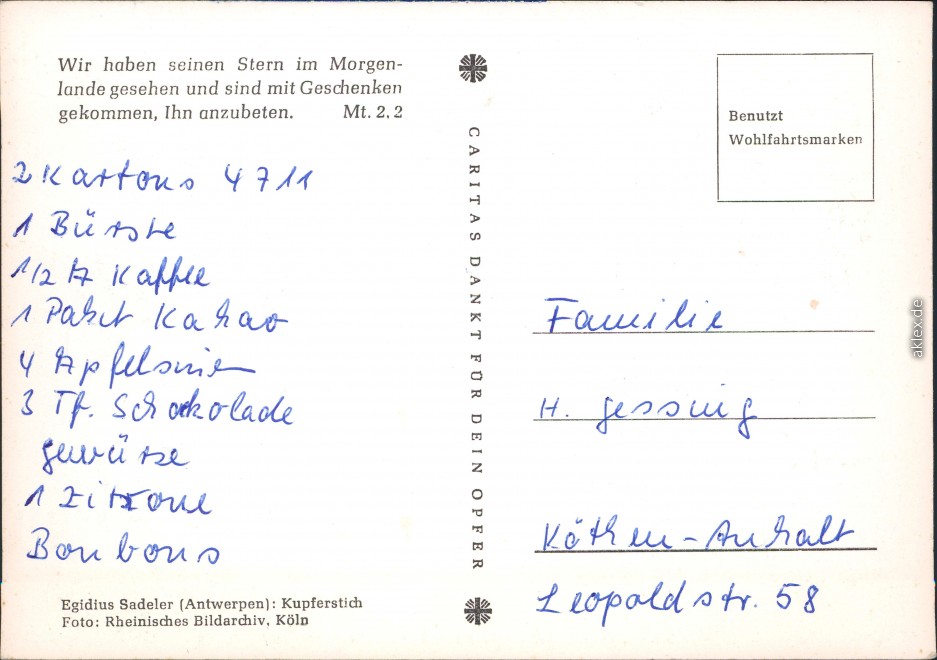 Wir haben seinen Stern im Morgen-
lande gesehen und sind mit Geschenken
gekommen, Ihn anzubeten. Mt. 2, 2
2 Kartons 4711
1 Bürste
1/2 Kaffee
1 Paket Kakao
4 Apfelsinen
3 Tf. Schokolade
gewürze
1 Zitrone
Bonbons
Egidius Sadeler (Antwerpen): Kupferstich
Foto: Rheinisches Bildarchiv, Köln
CARITAS DANKT FÜR DEIN OPFER
Benutzt
Wohlfahrtsmarken
Familie
H. Jessing
Köthen-Anhalt
Leopoldstr. 58
aklex.de